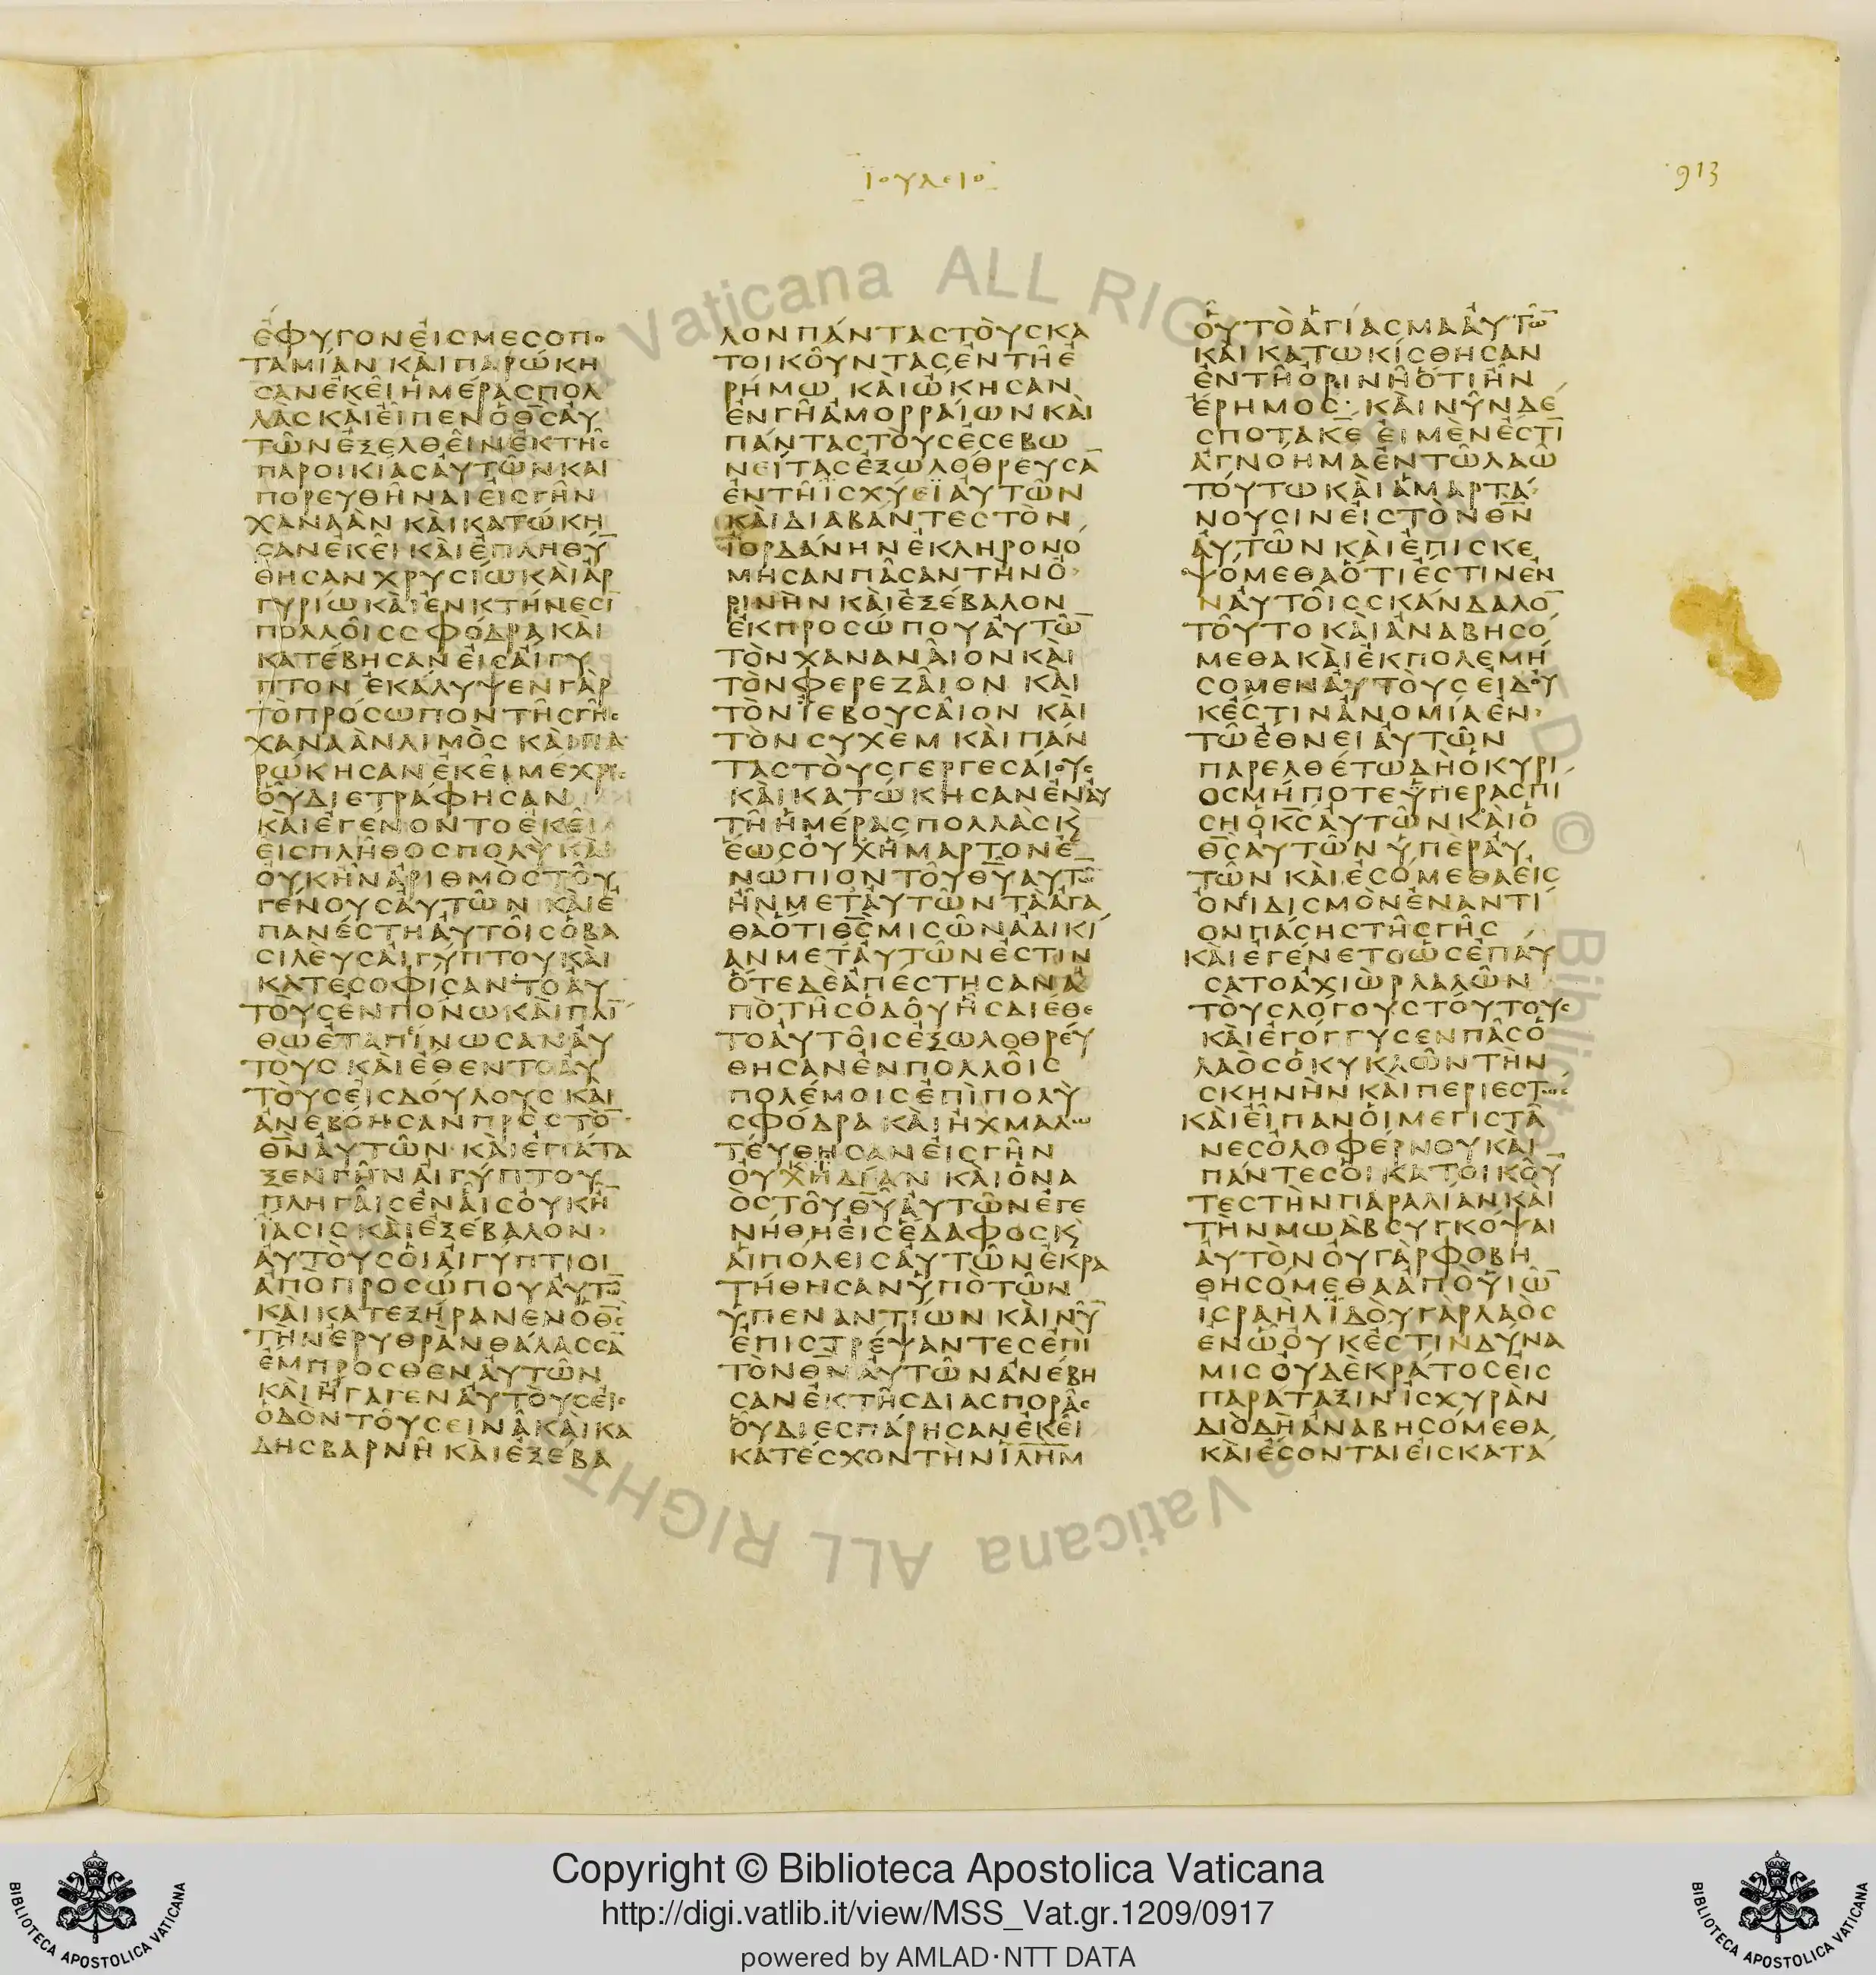 ΙΟΥΔΕΙΘ
913
ἐφυγον εἰς μεσοπο
ταμίαν καὶ παρῴκη
σαν ἐκεῖ ἡμέρας πολ
λὰς καὶ εἶπεν ὁ θς αὐ
τῶν ἐξελθεῖν ἐκ τῆς
παροικίας αὐτῶν καὶ
πορευθῆναι εἰς γῆν
χαναὰν καὶ κατῴκη
σαν ἐκεῖ καὶ ἐπληθύ̅
θησαν χρυσίῳ καὶ ἀρ
γυρίῳ καὶ ἐν κτήνεσι̅
πολλοῖς σφόδρα καὶ
κατέβησαν εἰς αἴγυ
πτον ἐκάλυψεν γὰρ
τὸ πρόσωπον τῆς γῆς
χαναὰν λιμὸς καὶ πα
ρῴκησαν ἐκεῖ μέχρις
οὗ διετράφησαν
καὶ ἐγένοντο ἐκεῖ
εἰς πλῆθος πολὺ καὶ
οὐκ ἦν ἀριθμὸς τοῦ
γένους αὐτῶν καὶ ἐ
πανέστη αὐτοῖς ὁ βα
σιλεὺς αἰγύπτου καὶ
κατεσοφίσαντο αὐ
τοὺς ἐν πόνῳ καὶ πλί̅
θῳ ἐταπίνωσαν αὐ
τοὺς καὶ ἔθεντο αὐ
τοὺς εἰς δούλους καὶ
ἀνεβόησαν πρὸς τὸ̅
θν̅ αὐτῶν καὶ ἐπάτα
ξεν γῆν αἰγύπτου
πληγαῖς ἐν αἷς οὐκ ἦ̅
ἴασις καὶ ἐξέβαλον
αὐτοὺς οἱ αἰγύπτιοι
ἀπὸ προσώπου αὐτῶ̅
καὶ κατεξήρανεν ὁ θς̅
τὴν ἐρυθρὰν θάλασσα̅
ἔμπροσθεν αὐτῶν
καὶ ἤγαγεν αὐτοὺς εἰς
ὁδὸν τοῦ σεινᾶ καὶ κα
δης βαρνῆ καὶ ἐξέβα
λον πάντας τοὺς κα
τοικοῦντας ἐν τῇ ἐ
ρήμῳ καὶ ᾤκησαν
ἐν γῇ ἀμορραίων καὶ
πάντας τοὺς ἐσεβω
νείτας ἐξωλόθρευσα̅
ἐν τῇ ἰσχύεϊ αὐτῶν
καὶ διαβάντες τὸν
ἰορδάνην ἐκληρονό
μησαν πᾶσαν τὴν ὀ
ρινὴν καὶ ἐξέβαλον
ἐκ προσώπου αὐτῶ̅
τὸν χαναναῖον καὶ
τὸν φερεζαῖον καὶ
τὸν ἰεβουσαῖον καὶ
τὸν συχὲμ καὶ πάν
τας τοὺς γεργεσαίους
καὶ κατῴκησαν ἐν αὐ
τῇ ἡμέρας πολλὰς κ̀
ἕως οὐχ ἥμαρτον ἐ
νώπιον τοῦ θυ̅ αὐτῶ̅
ἦν μετ αὐτῶν τὰ ἀγα
θὰ ὅτι θς̅ μισῶν ἀδικί
αν μετ αὐτῶν ἐστιν
ὅτε δὲ ἀπέστησαν ἀ
πὸ τῆς ὁδοῦ ἧς διέθε
το αὐτοῖς ἐξωλοθρεύ
θησαν ἐν πολλοῖς
πολέμοις ἐπὶ πολὺ
σφόδρα καὶ ᾐχμαλω
τεύθησαν εἰς γῆν
οὐχ ἰδίαν καὶ ὁ να
ὸς τοῦ θυ̅ αὐτῶν ἐγε
νήθη εἰς ἔδαφος κ̀
αἱ πόλεις αὐτῶν ἐκρα
τήθησαν ὑπὸ τῶν
ὑπεναντίων καὶ νῦ̅
ἐπιστρέψαντες ἐπὶ
τὸν θν̅ αὐτῶν ἀνέβη
σαν ἐκ τῆς διασπορᾶς
οὗ διεσπάρησαν ἐκεῖ
κατέσχον τὴν ιλημ̅
οὗ τὸ ἁγίασμα αὐτῶ̅
καὶ κατῳκίσθησαν
ἐν τῇ ὀρινῇ ὅτι ἦν
ἔρημος· καὶ νῦν δέ
σποτα κε̅ εἰ μὲν ἐστὶ̅
ἀγνόημα ἐν τῷ λαῷ
τούτῳ καὶ ἁμαρτά
νουσιν εἰς τὸν θν̅
αὐτῶν καὶ ἐπισκε
ψόμεθα ὅτι ἔστιν ἐν
αὐτοῖς σκάνδαλο̅
τοῦτο καὶ ἀναβησό
μεθα καὶ ἐκπολεμή
σομεν αὐτοὺς εἰ δ οὐ
κ ἔστιν ἀνομία ἐν
τῷ ἔθνει αὐτῶν
παρελθέτω δὴ ὁ κύρι
ός μου μήποτε ὑπερασπί
σῃ ὁ κς̅ αὐτῶν καὶ ὁ
θς̅ αὐτῶν ὑπὲρ αὐ
τῶν καὶ ἐσόμεθα εἰς
ὀνιδισμὸν ἐναντί
ον πάσης τῆς γῆς
καὶ ἐγένετο ὡς ἐπαύ
σατο ἀχιὼρ λαλῶν
τοὺς λόγους τούτους
καὶ ἐγόγγυσεν πᾶς ὁ
λαὸς ὁ κυκλῶν τὴν
σκηνὴν καὶ περιεστὼς
καὶ εἶπαν οἱ μεγιστᾶ
νες ὀλοφέρνου καὶ
πάντες οἱ κατοικοῦ̅
τες τὴν παραλίαν καὶ
τὴν μωὰβ συγκόψαι
αὐτὸν οὐ γὰρ φοβη
θησόμεθα ἀπὸ υἱῶ̅
ἰσραὴλ ἰδοὺ γὰρ λαὸς
ἐν ᾧ οὐκ ἔστιν δύνα
μις οὐδὲ κράτος εἰς
παράταξιν ἰσχυρὰν
διὸ δὴ ἀναβησόμεθα
καὶ ἔσονται εἰς κατά
Copyright © Biblioteca Apostolica Vaticana
http://digi.vatlib.it/view/MSS_Vat.gr.1209/0917
powered by AMLAD·NTT DATA
BIBLIOTECA APOSTOLICA VATICANA
BIBLIOTECA APOSTOLICA VATICANA